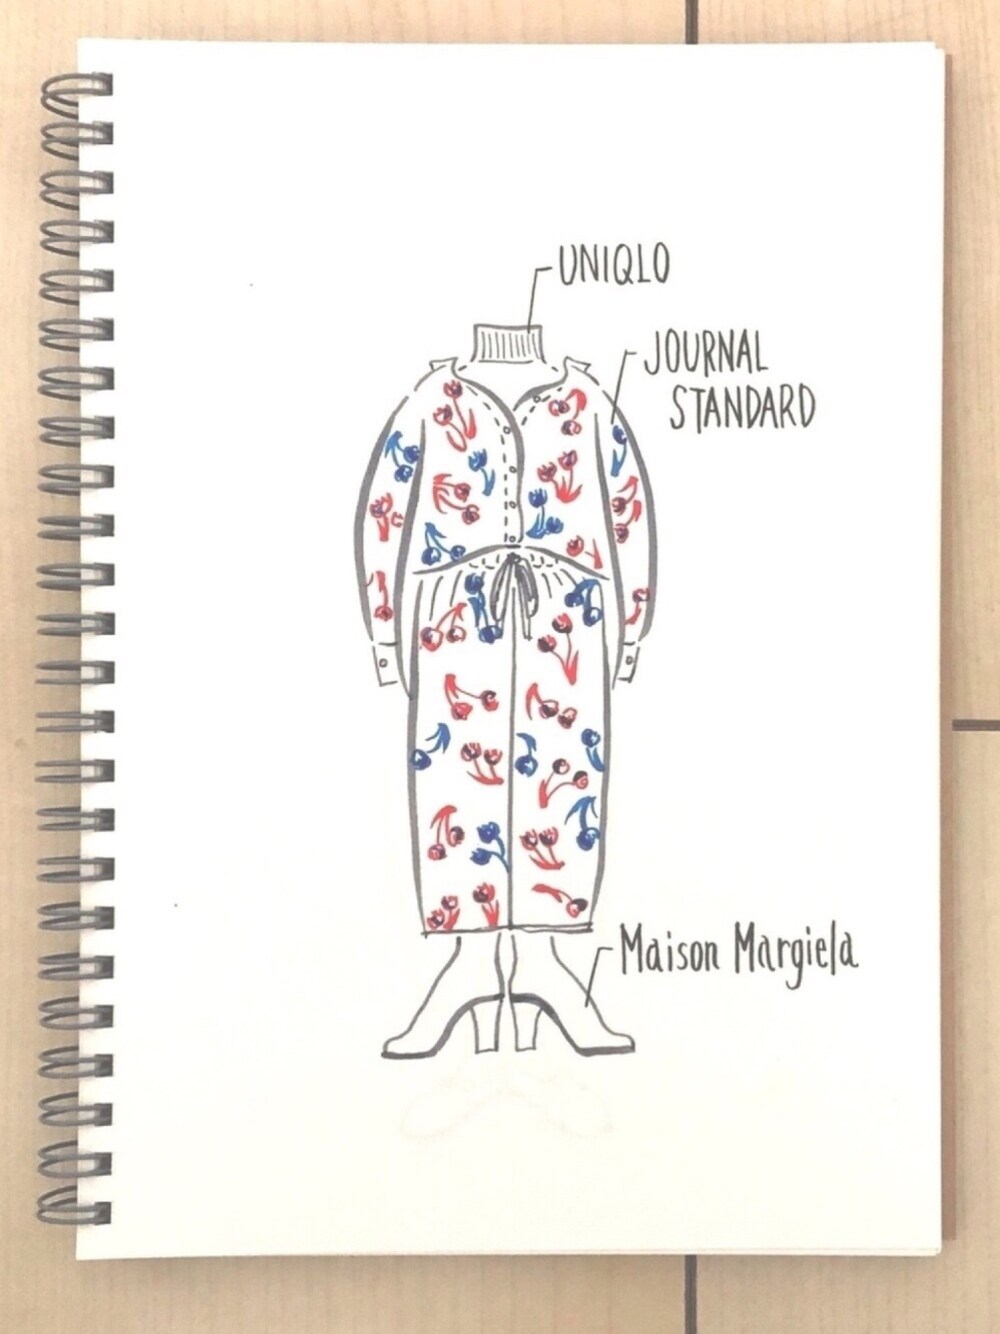 UNIQLO
JOURNAL
STANDARD
Maison Margiela